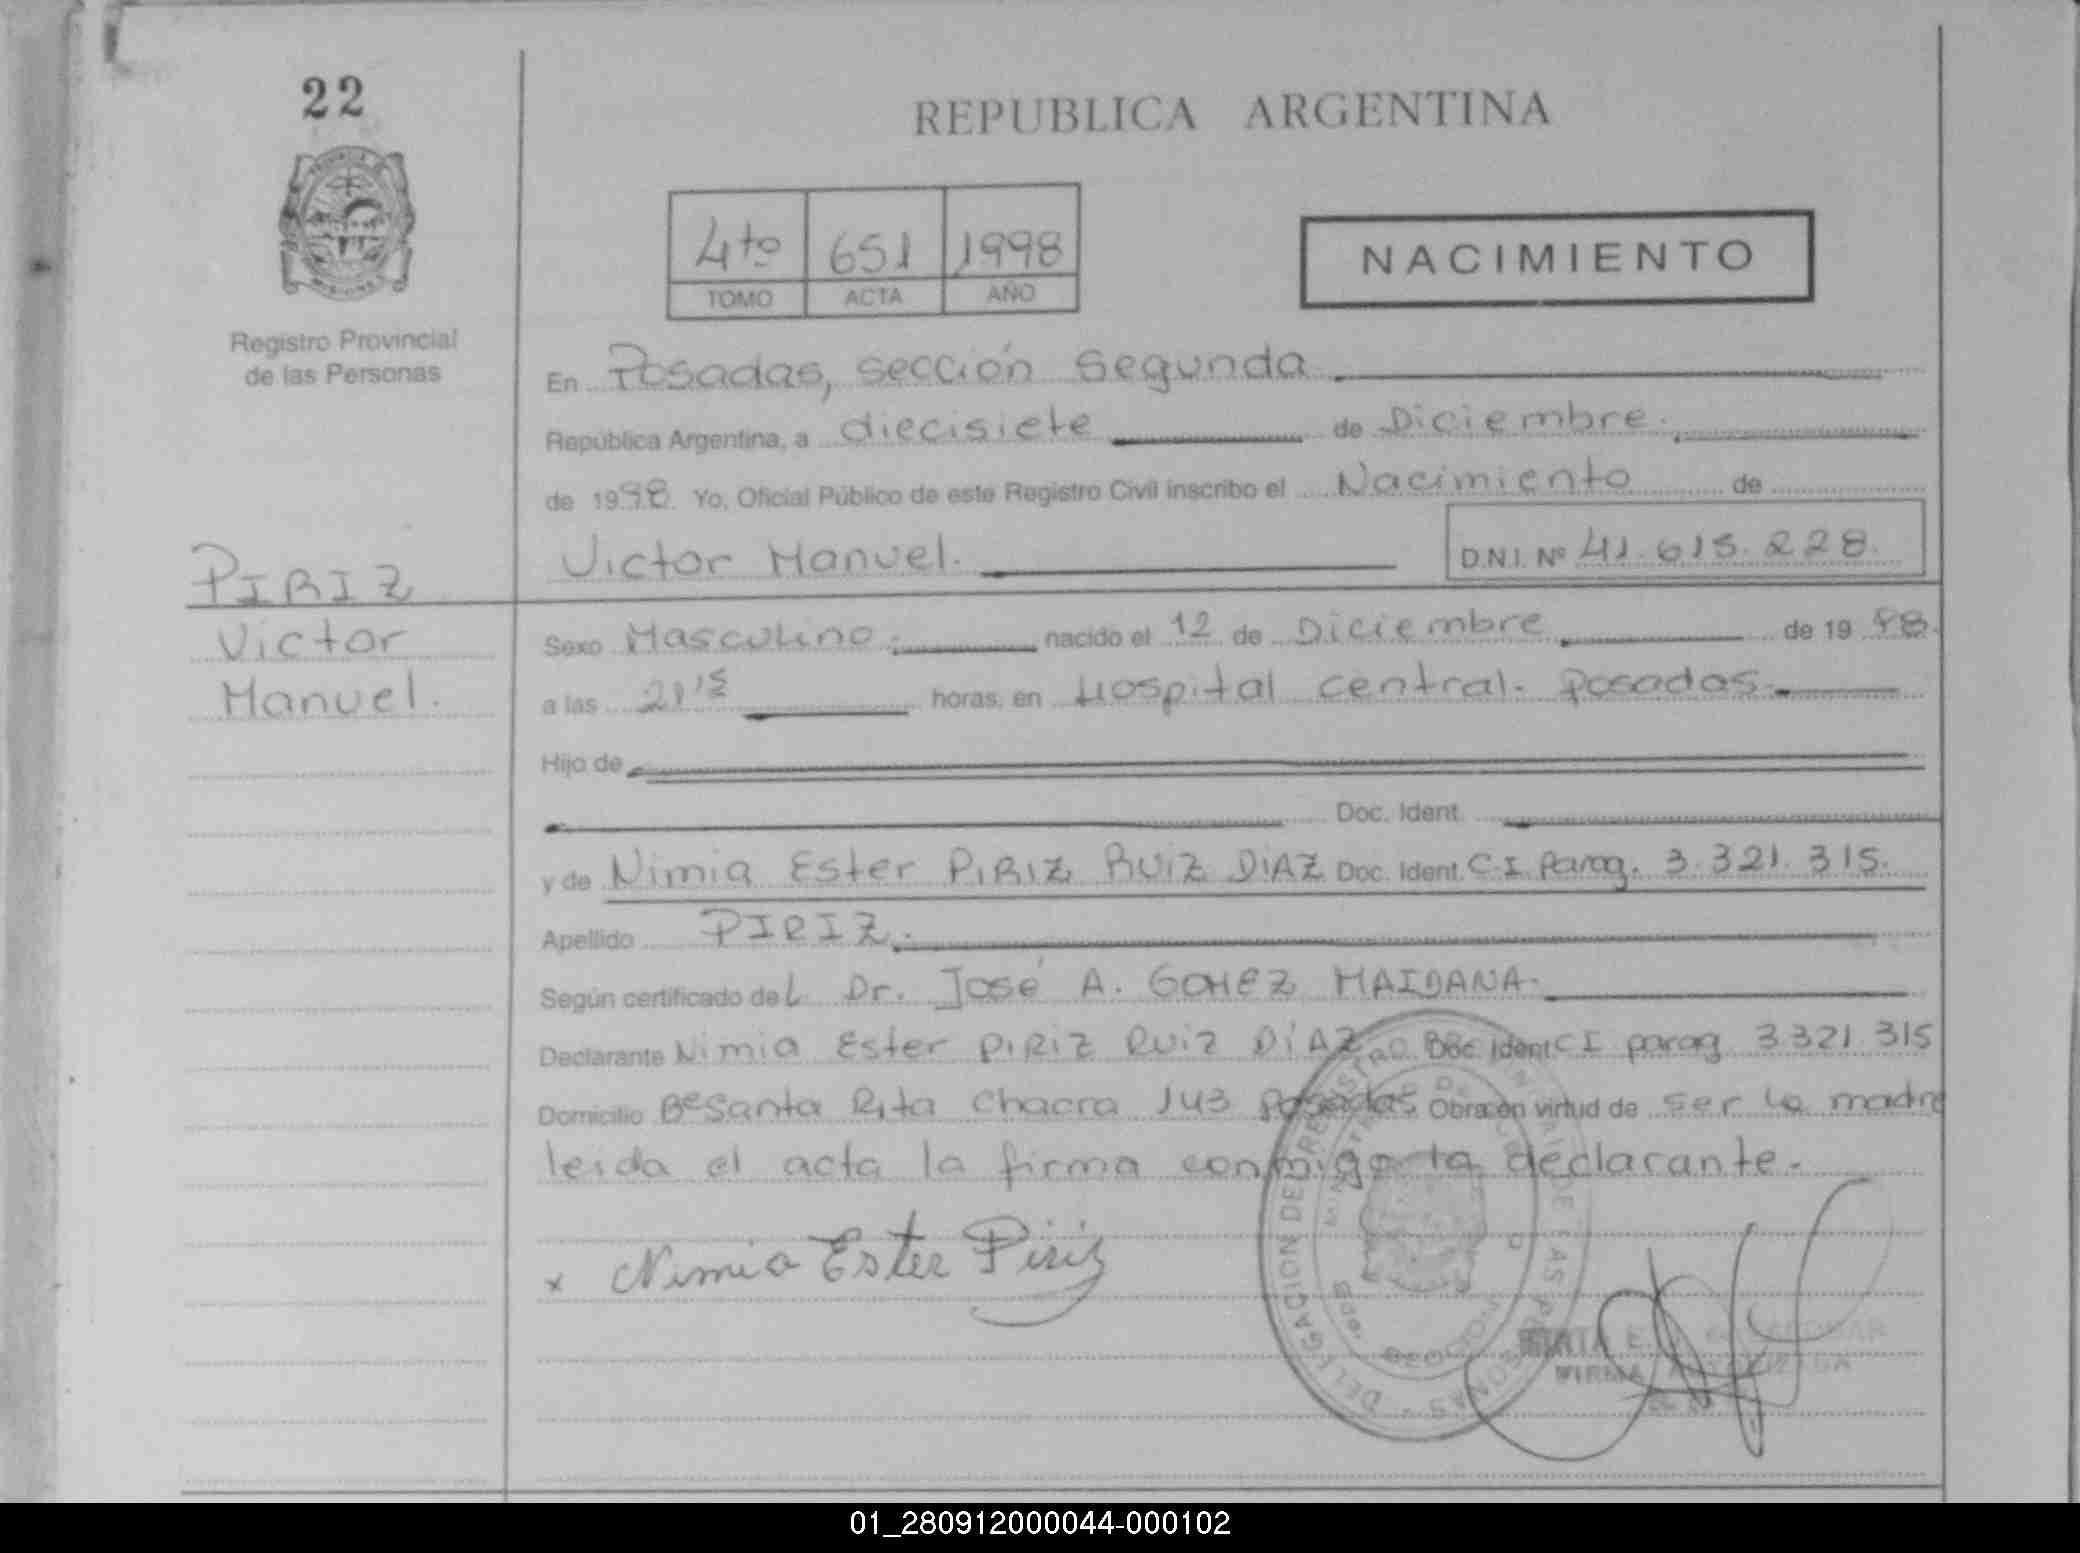 22
REPUBLICA ARGENTINA
4to 651 1998
TOMO ACTA AÑO
NACIMIENTO
Registro Provincial
de las Personas
En Posadas, sección Segunda
República Argentina, a diecisiete de Diciembre.
de 1998. Yo, Oficial Público de este Registro Civil inscribo el Nacimiento de
Victor Manuel. D.N.I. Nº 41.615.228.
PIRIZ
Victor
Manuel.
Sexo Masculino. nacido el 12 de Diciembre de 1998.
a las 21 15 horas, en Hospital central. Posadas.
Hijo de
Doc. Ident.
y de Nimia Ester PIRIZ RUIZ DIAZ Doc. Ident. C.I. Parag. 3.321.315.
Apellido PIRIZ.
Según certificado del Dr. José A. GOMEZ MAIDANA.
Declarante Nimia Ester PIRIZ RUIZ DÍAZ Doc Ident CI parag 3321.315
Domicilio Bº Santa Rita Chacra 143 Posadas Obra en virtud de ser la madre
leida el acta la firma conmigo la declarante.
x Nimia Ester Piriz
DELEGACION DEL REGISTRO PROVINCIAL DE LAS PERSONAS
FIRMA AUTORIZADA
01_280912000044-000102